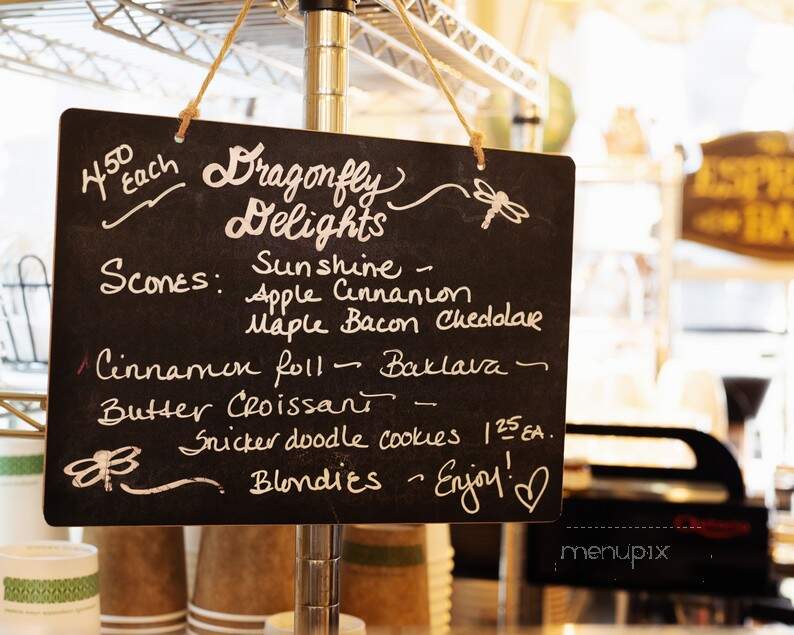 4.50 Each
Dragonfly
Delights
Scones: Sunshine -
Apple Cinnamon
Maple Bacon Cheddar
Cinnamon Roll - Baklava -
Butter Croissant -
Snickerdoodle cookies 1.25 EA.
Blondies - Enjoy!
ESPR
BA
menupix